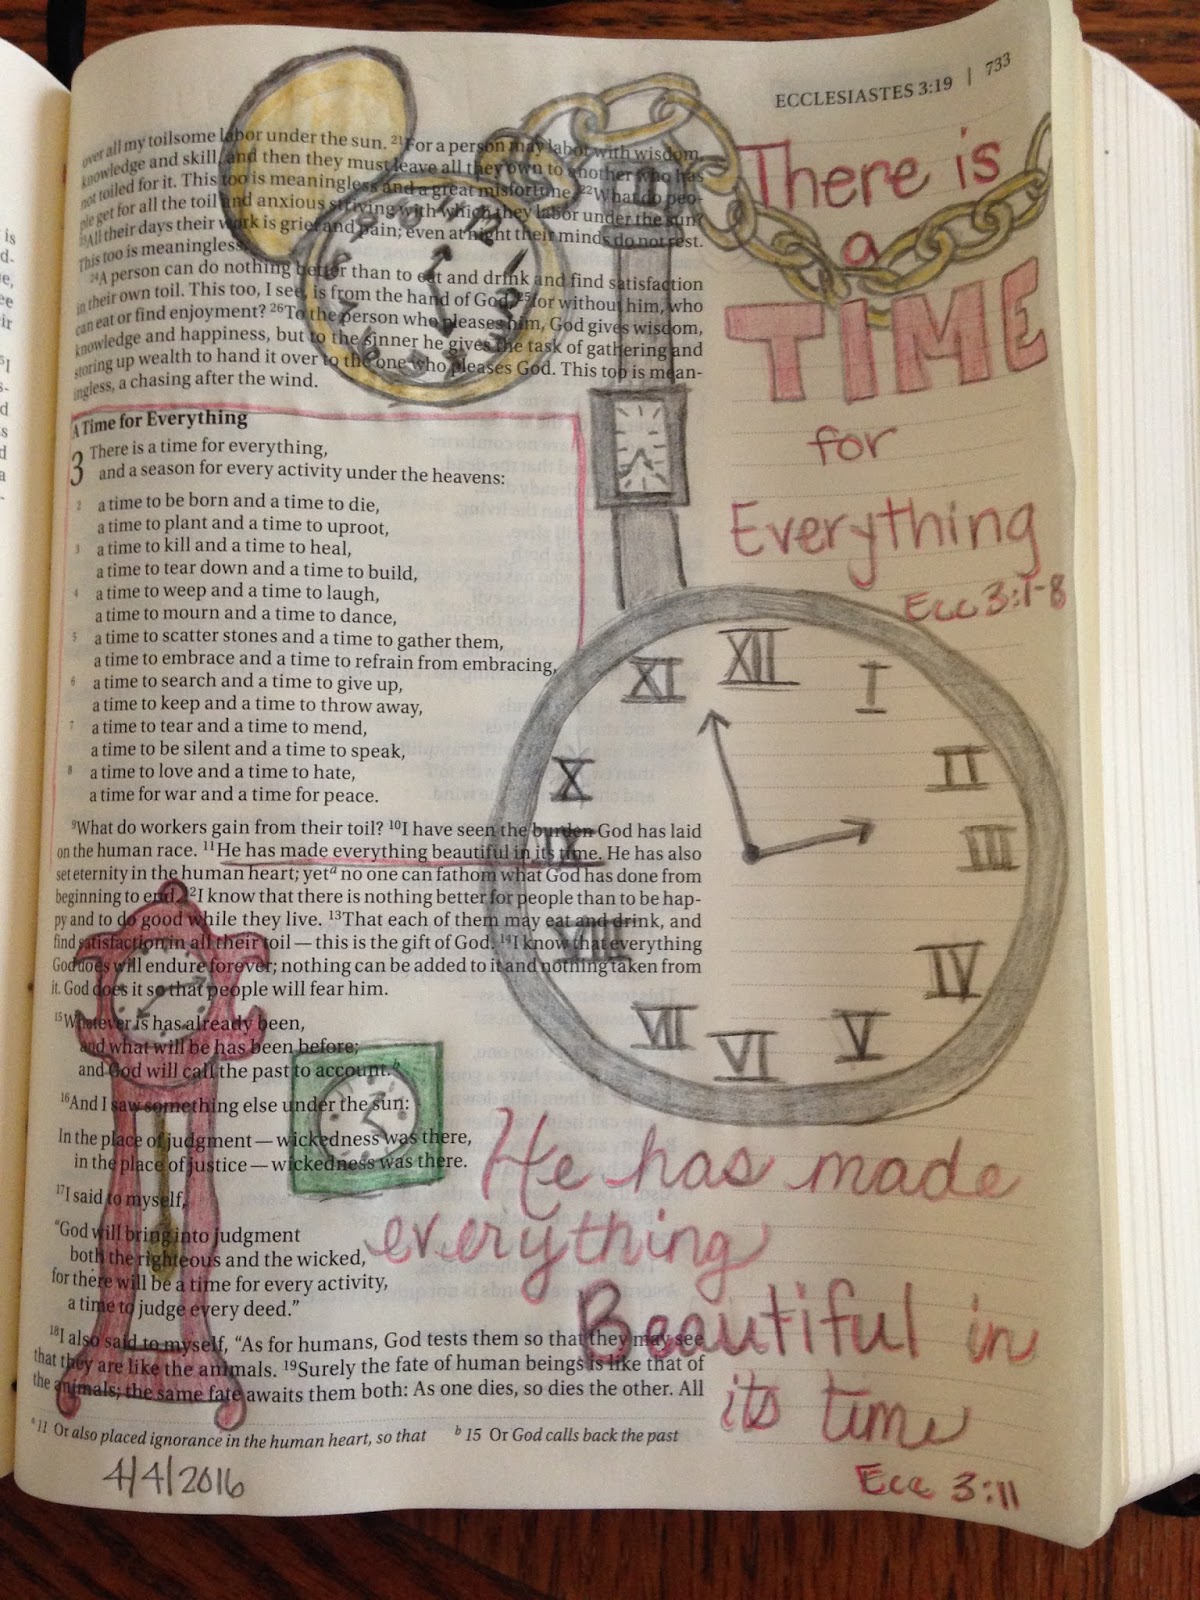 ECCLESIASTES 3:19 | 733
over all my toilsome labor under the sun. 21For a person may labor with wisdom,
knowledge and skill, and then they must leave all they own to another who has
not toiled for it. This too is meaningless and a great misfortune. 22What do peo-
ple get for all the toil and anxious striving with which they labor under the sun?
23All their days their work is grief and pain; even at night their minds do not rest.
This too is meaningless.
24A person can do nothing better than to eat and drink and find satisfaction
in their own toil. This too, I see, is from the hand of God, 25for without him, who
can eat or find enjoyment? 26To the person who pleases him, God gives wisdom,
knowledge and happiness, but to the sinner he gives the task of gathering and
storing up wealth to hand it over to the one who pleases God. This too is mean-
ingless, a chasing after the wind.
A Time for Everything
3 There is a time for everything,
and a season for every activity under the heavens:
2 a time to be born and a time to die,
a time to plant and a time to uproot,
3 a time to kill and a time to heal,
a time to tear down and a time to build,
4 a time to weep and a time to laugh,
a time to mourn and a time to dance,
5 a time to scatter stones and a time to gather them,
a time to embrace and a time to refrain from embracing,
6 a time to search and a time to give up,
a time to keep and a time to throw away,
7 a time to tear and a time to mend,
a time to be silent and a time to speak,
8 a time to love and a time to hate,
a time for war and a time for peace.
9What do workers gain from their toil? 10I have seen the burden God has laid
on the human race. 11He has made everything beautiful in its time. He has also
set eternity in the human heart; yet a no one can fathom what God has done from
beginning to end. 12I know that there is nothing better for people than to be hap-
py and to do good while they live. 13That each of them may eat and drink, and
find satisfaction in all their toil — this is the gift of God. 14I know that everything
God does will endure forever; nothing can be added to it and nothing taken from
it. God does it so that people will fear him.
15Whatever is has already been,
and what will be has been before;
and God will call the past to account.b
16And I saw something else under the sun:
In the place of judgment — wickedness was there,
in the place of justice — wickedness was there.
17I said to myself,
“God will bring into judgment
both the righteous and the wicked,
for there will be a time for every activity,
a time to judge every deed.”
18I also said to myself, “As for humans, God tests them so that they may see
that they are like the animals. 19Surely the fate of human beings is like that of
the animals; the same fate awaits them both: As one dies, so dies the other. All
a 11 Or also placed ignorance in the human heart, so that b 15 Or God calls back the past
4/4/2016
There is
a
TIME
for
Everything
Ecc 3:1-8
XII
XI
I
X
II
IX
III
VIII
IV
VII
V
VI
He has made
everything
Beautiful in
its time
Ecc 3:11